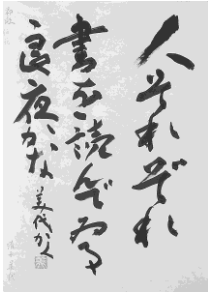 人それぞれ
書を読んでゐる
良夜かな
美代かく